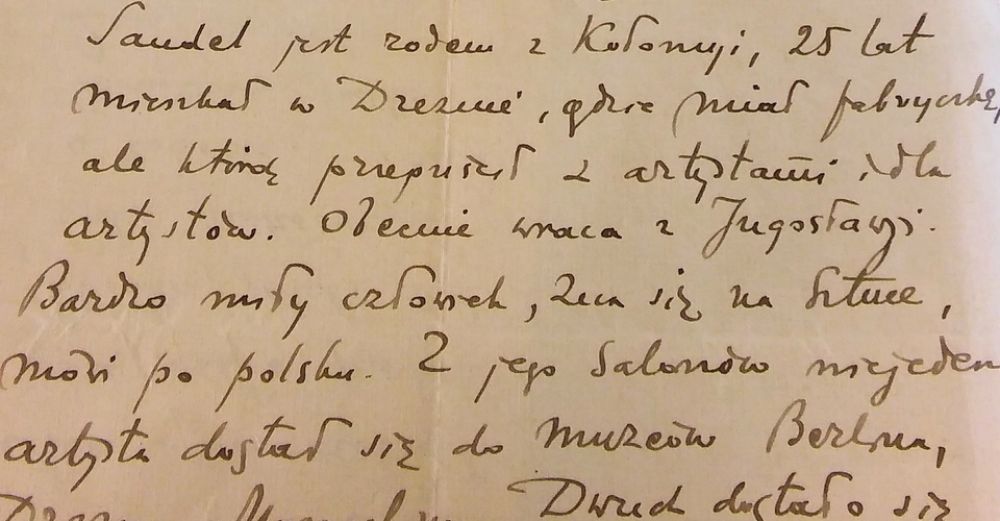 Sandel jest rodem z Kołomyji, 25 lat
mieszkał w Dreznie, gdzie miał fabryczkę,
ale którą przepuścił z artystami i dla
artystów. Obecnie wraca z Jugosławji.
Bardzo miły człowiek, zna się na sztuce,
mówi po polsku. Z jego salonów niejeden
artysta dostał się do muzeów Berlina,
Dwuch dostało się